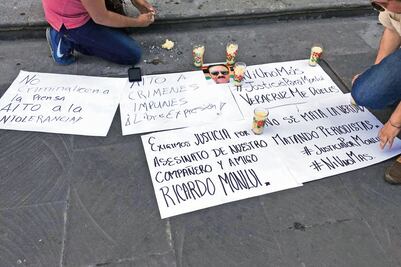 No
Criminalicen a
la Prensa
ALTO a la
INTOLERANCIA!
ALTO A
CRIMENES
IMPUNES
¡Libre Expresión!
Ni Uno Más
#Justicia Para Monlui
Veracruz Me Dueles
Exigimos JUSTICIA por
Asesinato de Nuestro
Compañero y Amigo
RICARDO MONLUI.
NO SE MATA LA VERDAD
MATANDO PERIODISTAS.
#Justicia Monlui
#Ni Uno Mas